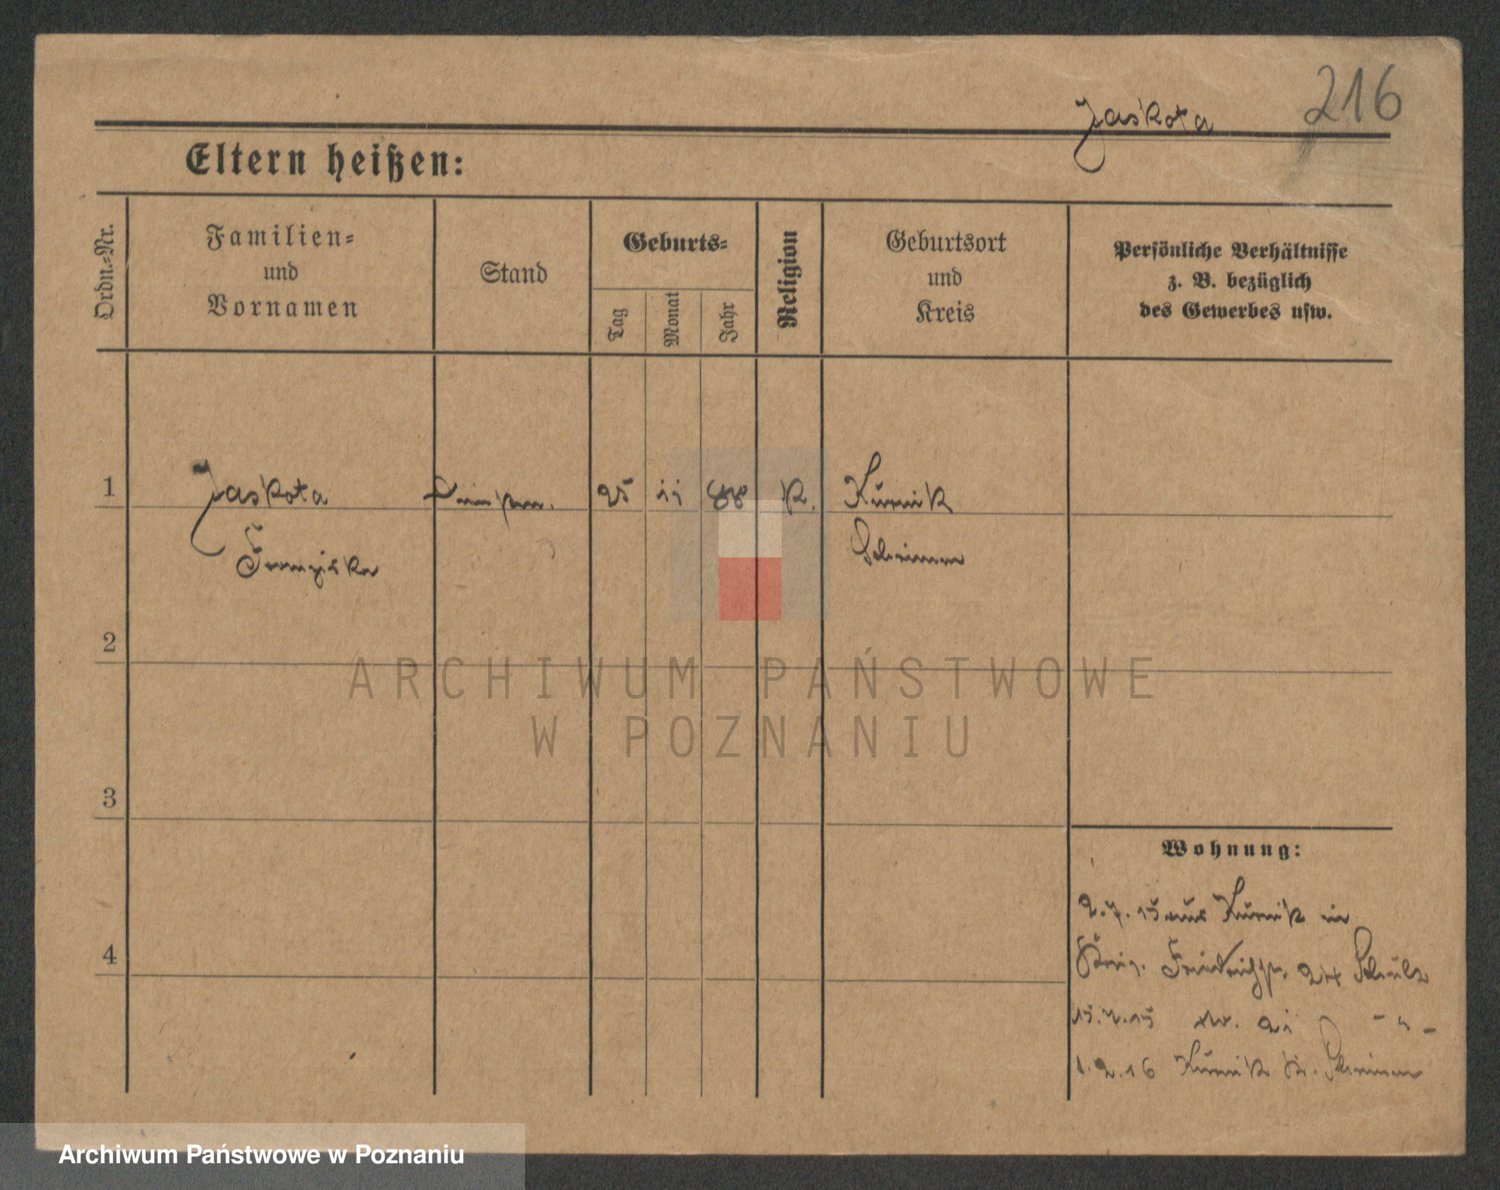 216
Jaskota
Eltern heißen:
Ordn.-Nr.
Familien-
und
Vornamen
Stand
Geburts-
Tag
Monat
Jahr
Religion
Geburtsort
und
Kreis
Persönliche Verhältnisse
z. B. bezüglich
des Gewerbes usw.
1
Jaskota 25 11 88 K. Kurnik
Franziska Schrimm
2
ARCHIWUM PAŃSTWOWE
W POZNANIU
3
Wohnung:
2.7.15 aus Kurnik in
Friedrichstr. 24 Schulz
4
15.7.15 21 - " -
1.2.16 Kurnik Kr. Schrimm
Archiwum Państwowe w Poznaniu